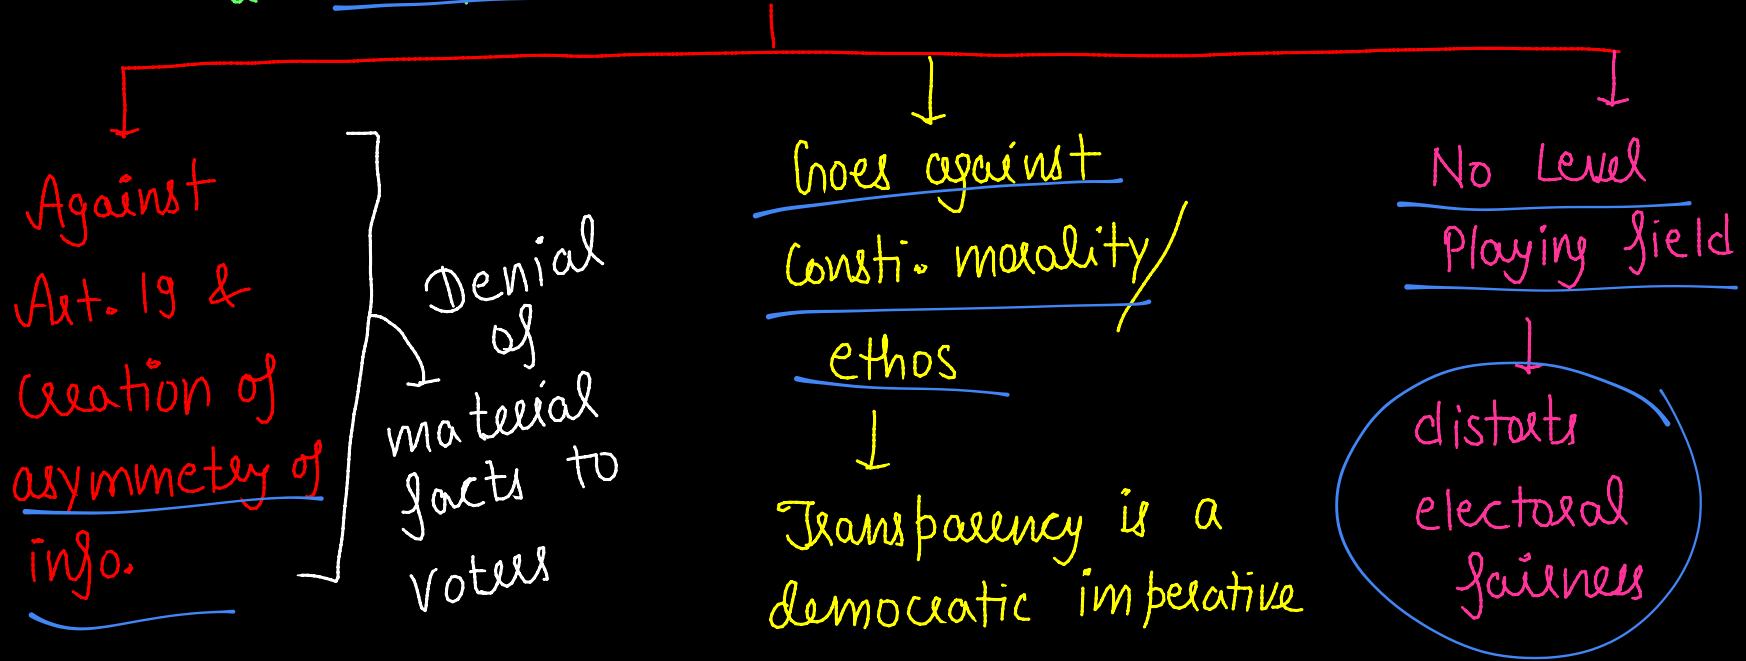 Against
Art. 19 &
creation of
asymmetry of
info.
Denial
of
material
facts to
voters
Goes against
Consti. morality/
ethos
Transparency is a
democratic imperative
No Level
Playing field
distorts
electoral
fairness